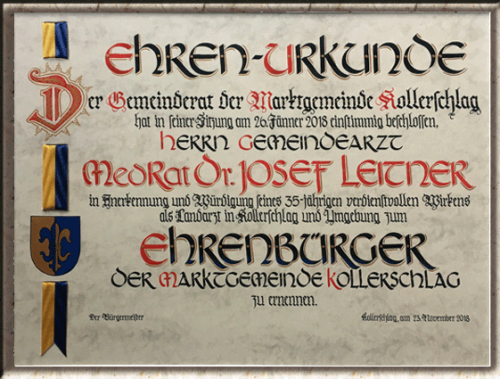 Ehren-Urkunde
Der Gemeinderat der Marktgemeinde Kollerschlag
hat in seiner Sitzung am 26. Jänner 2018 einstimmig beschlossen,
Herrn Gemeindearzt
MedRat Dr. Josef Leitner
in Anerkennung und Würdigung seines 35-jährigen verdienstvollen Wirkens
als Landarzt in Kollerschlag und Umgebung zum
Ehrenbürger
der Marktgemeinde Kollerschlag
zu ernennen.
Der Bürgermeister
Kollerschlag, am 23. November 2018